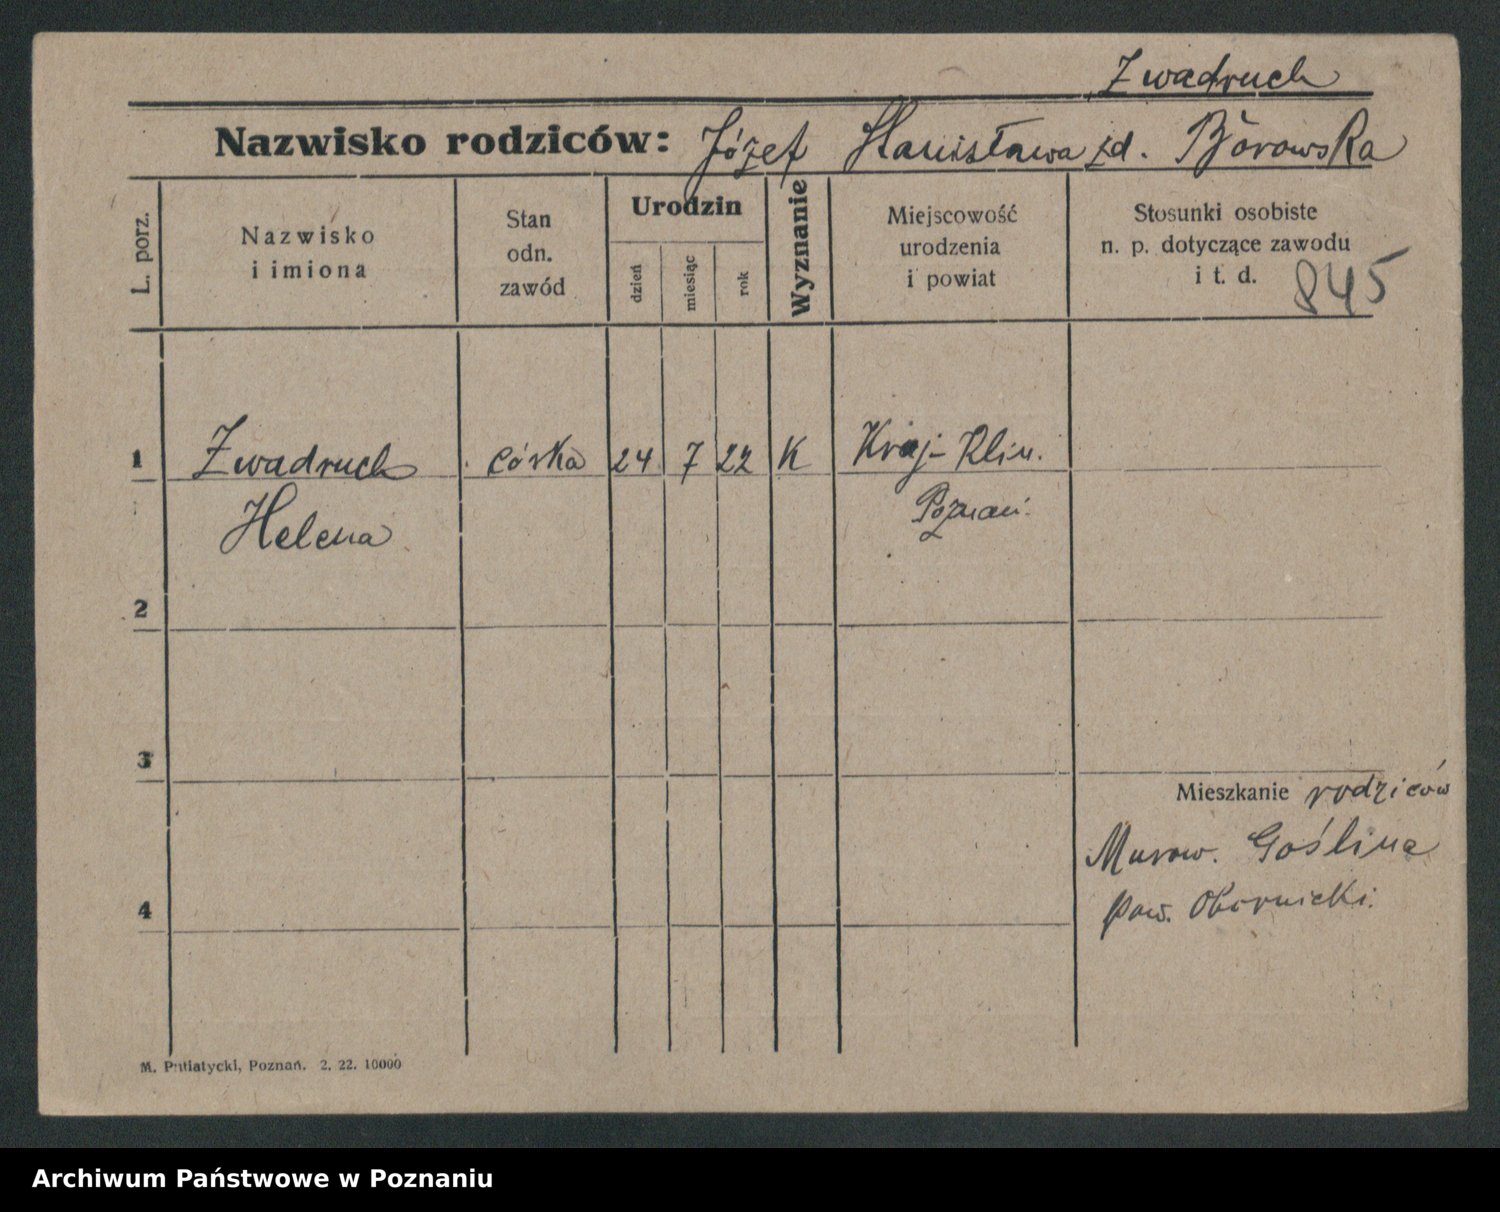 Zwadruch
Nazwisko rodziców: Józef Stanisława zd. Borowska
L. porz.
Nazwisko
i imiona
Stan
odn.
zawód
Urodzin
dzień
miesiąc
rok
Wyznanie
Miejscowość
urodzenia
i powiat
Stosunki osobiste
n. p. dotyczące zawodu
i t. d.
845
1 Zwadruch córka 24 7 22 K Kraj. Klin.
Helena Poznań.
2
3
Mieszkanie rodziców
Murow. Goślina
4
pow. Obornicki.
M. Putiatycki, Poznań. 2. 22. 10000
Archiwum Państwowe w Poznaniu